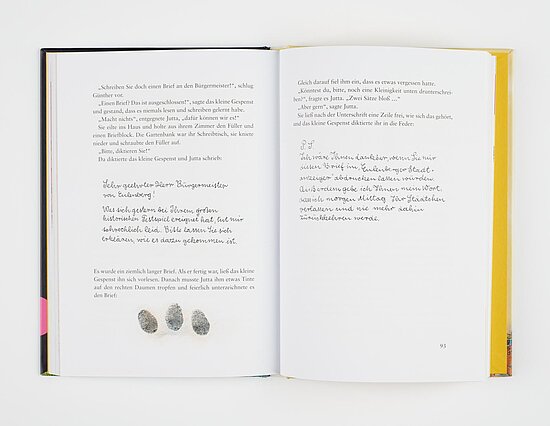 „Schreiben Sie doch einen Brief an den Bürgermeister!“, schlug
Günther vor.
„Einen Brief? Das ist ausgeschlossen!“, sagte das kleine Gespenst
und gestand, dass es niemals lesen und schreiben gelernt habe.
„Macht nichts“, entgegnete Jutta, „dafür können wir es!“
Sie eilte ins Haus und holte aus ihrem Zimmer den Füller und
einen Briefblock. Die Gartenbank war ihr Schreibtisch, sie kniete
nieder und schraubte den Füller auf.
„Bitte, diktieren Sie!“
Da diktierte das kleine Gespenst und Jutta schrieb:
Sehr geehrter Herr Bürgermeister
von Eulenberg!
Was sich gestern bei Ihrem großen
historischen Festspiel ereignet hat, tut mir
schrecklich leid. Bitte lassen Sie sich
erklären, wie es dazu gekommen ist.
Es wurde ein ziemlich langer Brief. Als er fertig war, ließ das kleine
Gespenst ihn sich vorlesen. Danach musste Jutta ihm etwas Tinte
auf den rechten Daumen tropfen und feierlich unterzeichnete es
den Brief:
Gleich darauf fiel ihm ein, dass es etwas vergessen hatte.
„Könntest du, bitte, noch eine Kleinigkeit unten drunterschrei-
ben?“, fragte es Jutta. „Zwei Sätze bloß ...“
„Aber gern“, sagte Jutta.
Sie ließ nach der Unterschrift eine Zeile frei, wie sich das gehört,
und das kleine Gespenst diktierte ihr in die Feder:
P. S.
Ich wäre Ihnen dankbar, wenn Sie mir
diesen Brief im Eulenberger Stadt-
anzeiger abdrucken lassen würden.
Außerdem gebe ich Ihnen mein Wort,
dass ich morgen Mittag Ihr Städtchen
verlassen und nie mehr dahin
zurückkehren werde.
93